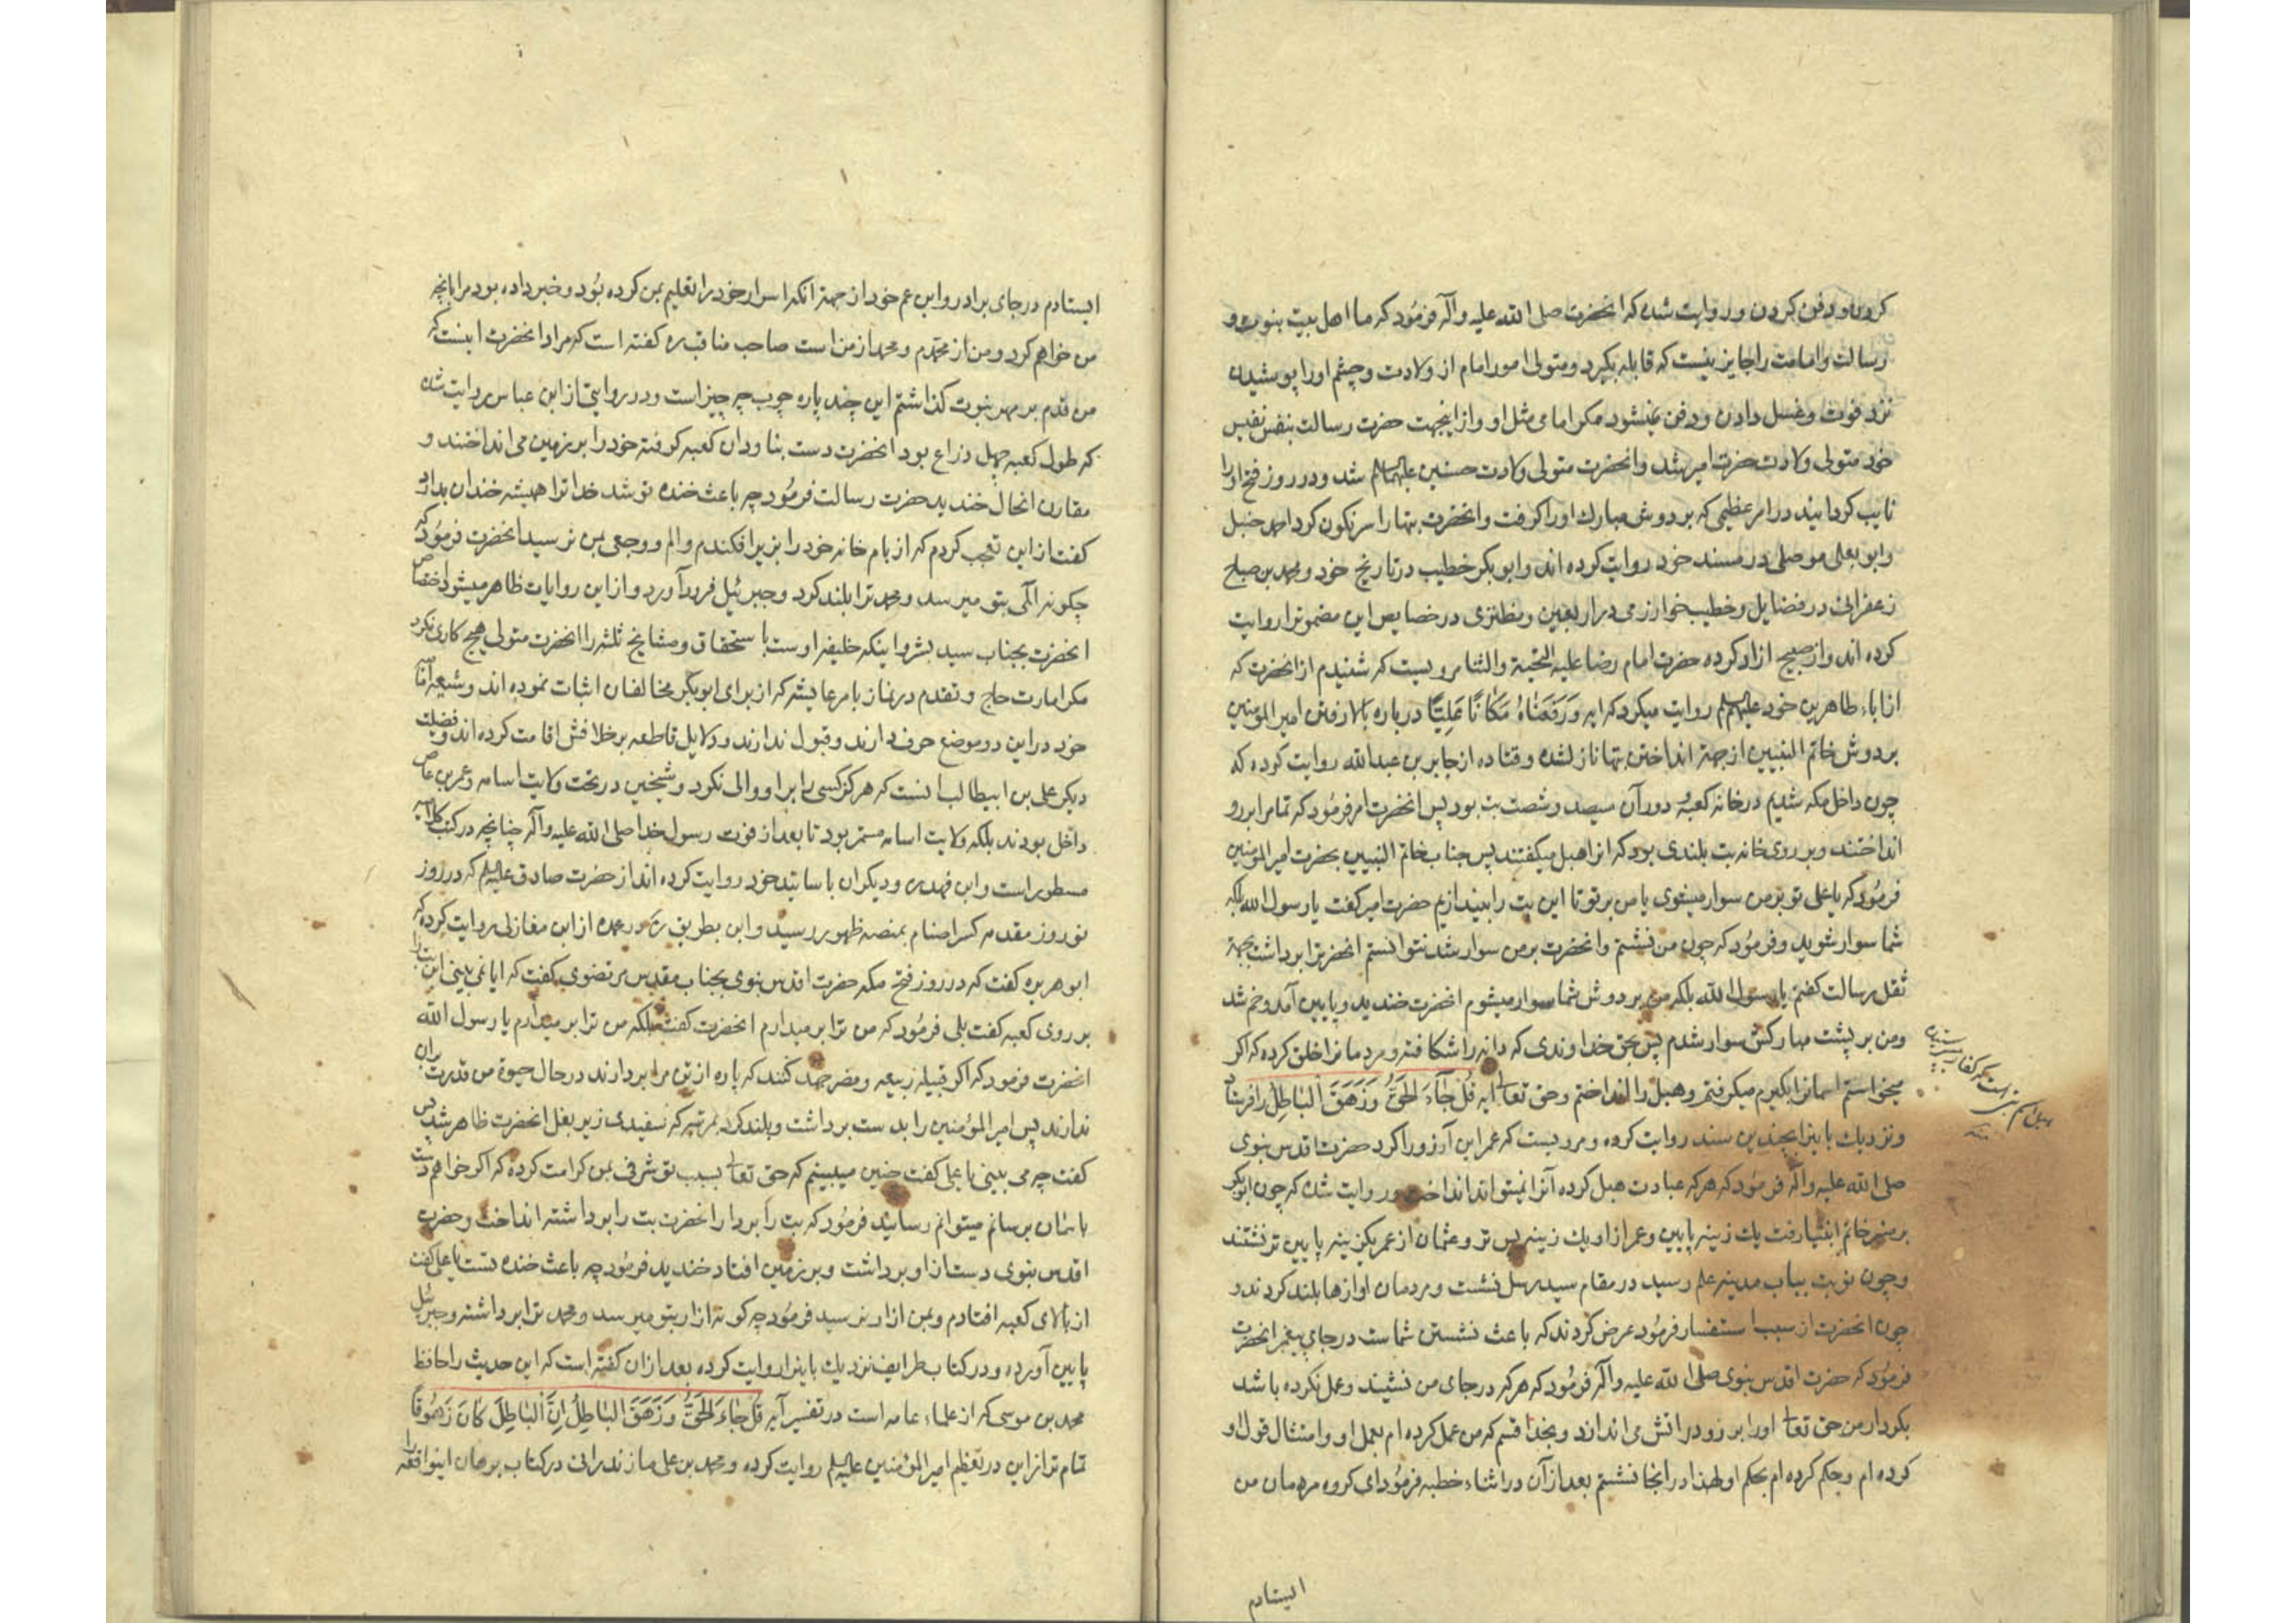 کردن و دفن کردن و روایت شده که انحضرت صلی الله علیه و آله فرمُود که ما اهل بیت بنوت و
رسالت و امامت را جایز نیست که قابله بکیرد و متولی امور امام از ولادت و چشم او را پوشیدن
نزد فوت و غسل دادن و دفن نمیشود مکر امامی مثل او و از اینجهت حضرت رسالت بنفس نفیس
خود متولی ولادت حضرت امیر شد و انحضرت متولی ولادت حسنین علیهما السلام شد و در روز فتح او را
نایب کردانید در امر عظیمی که بر دوش مبارك او را کرفت و انحضرت بتها را سرنکون کرد احمد حنبل
و ابو یعلی موصلی در مسند خود روایت کرده اند و ابو بکر خطیب در تاریخ خود و محمد بن صباح
زعفرانی در فضایل و خطیب خوارزمی در اربعین و نطنزی در خصایص این مضمونرا روایت
کرده اند و از صبیح ازاد کرده حضرت امام رضا علیه التحیة و الثنا مرویست که شنیدم از انحضرت که
از اباء طاهرین خود علیهم السلم روایت میکرد که ایه وَرَفَعْنَاهُ مَکَانًا عَلِیًّا درباره بالا رفتن امیر المؤمنین
بر دوش خاتم النبیین از جهة انداختن بتها نازل شده و قتاده از جابر بن عبدالله روایت کرده که
چون داخل مکه شدیم در خانه کعبه و دور آن سیصد و شصت بت بود پس انحضرت امر فرمُود که تمام را بر رو
انداختند و بر روی خانه بت بلندی بود که انرا هبل میکفتند پس جناب خاتم النبیین بحضرت امیر المؤمنین
فرمُود که یا علی تو بر من سوار میشوی یا من بر تو تا این بت را بیندازیم حضرت امیر کفت یا رسول الله بلکه
شما سوار شوید و فرمُود که چون من نشستم و انحضرت بر من سوار شد نتوانستم انحضرترا برداشت بجهة
ثقل رسالت کفتم یا رسول الله بلکه من بر دوش شما سوار میشوم انحضرت خندید و پایین آمد و خم شد
و من بر پشت مبارکش سوار شدم پس بحق خداوندی که دانه را شکافته و مردمانرا خلق کرده که اکر
میخواستم اسمانرا بکیرم میکرفتم و هبل را انداختم و حق تعالی ایه قُلْ جَآءَ الْحَقُّ وَزَهَقَ الْبَاطِلُ را فرستاد
و نزدیك باینرا بچندین سند روایت کرده و مرویست که عمر این آرزو را کرد حضرت اقدس بنوی
صلی الله علیه و آله فرمُود که هر که عبادت هبل کرده آنرا نمیتواند انداخت و روایت شده که چون ابو بکر
بر منبر خاتم انبیا رفت یك زینه پایین و عمر از او یك زینه پس تر و عثمان از عمر یکزینه پایین تر نشستند
و چون نوبت بباب مدینه علم رسید در مقام سید رسل نشست و مردمان اوازها بلند کردند و
چون انحضرت از سبب استفسار فرمُود عرض کردند که باعث نشستن شماست در جای پیغمبر انحضرت
فرمُود که حضرت اقدس بنوی صلی الله علیه و آله فرمُود که هر که در جای من نشیند و عمل نکرده باشد
بکردار من حق تعالی او را بر رو در اتش می اندازد و بخدا قسم که من عمل کرده ام بعمل او و امتثال قول او
کرده ام و حکم کرده ام بحکم او لهذا در انجا نشستم بعد از آن در اثناء خطبه فرمُود ای کروه مردمان من
ایستادم
ایستادم در جای برادر و ابن عم خود از جهة انکه اسرار خود را تعلیم بمن کرده بُود و خبر داده بود مرا بانچه
من خواهم کرد و من از محمّدم و محمد از من است صاحب مناقب ره کفته است که مراد انحضرت اینست که
من قدم بر مهر بنوت کذاشتم این چند پاره چوب چه چیز است و در روایتی از ابن عباس روایت شده
که طول کعبه چهل ذراع بود انحضرت دست بناودان کعبه کرفته خود را بر زمین می انداختند و
مقارن انحال خندید حضرت رسالت فرمُود چه باعث خنده تو شد خدا ترا همیشه خندان بدارد
کفت از این تعجب کردم که از بام خانه خود را بزیر افکندم و الم و وجعی بمن نرسید انحضرت فرمُود که
چکونه المی بتو میرسد و محمد ترا بلند کرد و جبرئیل فرود آورد و از این روایات ظاهر میشود اختصاص
انحضرت بجناب سید بشر و اینکه خلیفه اوست با ستحقاق و مشایخ ثلثه را انحضرت متولی هیچ کاری نکرد
مکر امارت حاج و تقدم در نماز بامر عایشه که از برای ابو بکر مخالفان اثبات نموده اند و شیعه امامیه
خود در این دو موضع حرف دارند و قبول ندارند و دلایل قاطعه بر خلافش اقامت کرده اند و فضیلت
دیکر علی بن ابیطالب انست که هرکز کسی را بر او والی نکرد و شیخین در تحت ولایت اسامه و عمر بن عاص
داخل بودند بلکه ولایت اسامه مستمر بود تا بعد از فوت رسول خدا صلی الله علیه و آله چنانچه در کتب کلامیه
مسطور است و ابن فهد ره و دیکران باسانید خود روایت کرده اند از حضرت صادق علیه السلم که در روز
نوروز مقدمه کسر اصنام بمنصه ظهور رسید و ابن بطریق ره در عمده از ابن مغازلی روایت کرده که
ابو هریره کفت که در روز فتح مکه حضرت اقدس بنوی بجناب مقدس مرتضوی کفت که ایا نمی بینی این بت را
بر روی کعبه کفت بلی فرمُود که من ترا بر میدارم انحضرت کفت بلکه من ترا بر میدارم یا رسول الله
انحضرت فرمود که اکر قبیله ربیعه و مضر جهد کنند که پاره از تن مرا بردارند در حال حیوة من قدرت بران
ندارند پس امیر المؤمنین را بدست برداشت و بلند کرد بمرتبه که سفیدی زیر بغل انحضرت ظاهر شد پس
کفت چه می بینی یا علی کفت چنین میبینم که حق تعالی بسبب تو شرفی بمن کرامت کرده که اکر خواهم دست
باسمان برسانم میتوانم رسانید فرمُود که بت را بردار انحضرت بت را برداشته انداخت و حضرت
اقدس بنوی دست از او برداشت و بر زمین افتاد خندید فرمُود چه باعث خنده تست یا علی کفت
از بالای کعبه افتادم و بمن ازار نرسید فرمُود چه کونه ازار بتو میرسد و محمد ترا برداشته و جبرئیل
پایین آورده و در کتاب طرایف نزدیك باینرا روایت کرده بعد از ان کفته است که این حدیث را حافظ
محمد بن موسی که از علماء عامه است در تفسیر آیه قُلْ جَاءَ الْحَقُّ وَزَهَقَ الْبَاطِلُ اِنَّ الْبَاطِلَ کَانَ زَهُوقًا
تمام تر از این در تعظیم امیر المؤمنین علیه السلم روایت کرده و محمد بن علی مازندرانی در کتاب برهان اینواقعه را